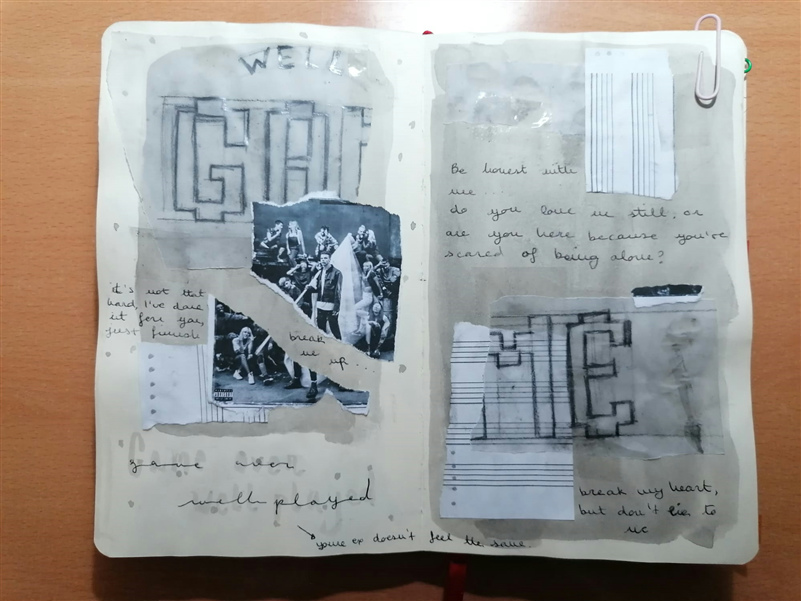 WELL
GA
it's not that
hard, I've done
it fore you,
just finish
break
me up...
game over
well played
youre ex doesn't feel the same.
Be honest with
me...
do you love me still, or
are you here because you've
scared of being alone?
ME
break my heart,
but don't lie to
me